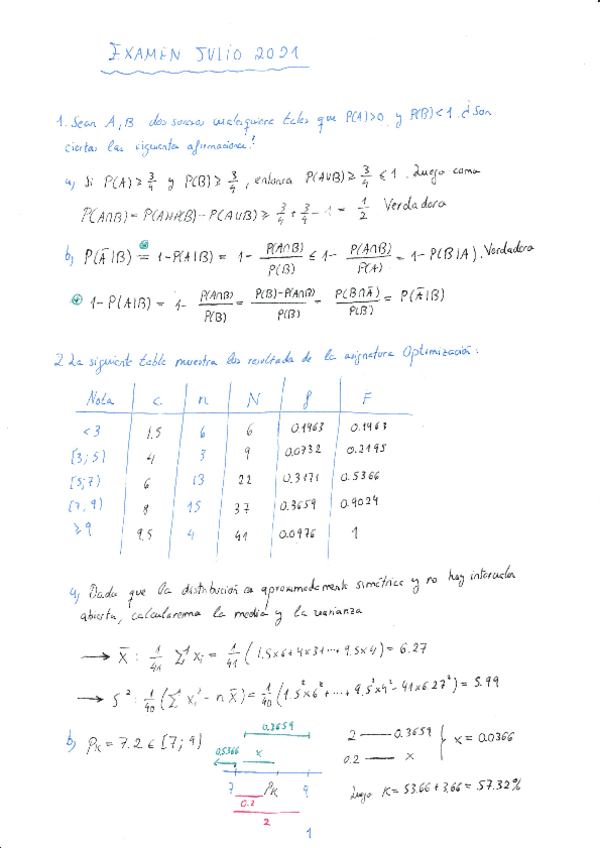 EXAMEN JULIO 2021
1. Sean A, B dos sucesos cualesquiera tales que P(A)>0 y P(B)<1. ¿Son
ciertas las siguientes afirmaciones?
a) Si P(A) ≥ 3/4 y P(B) ≥ 3/4, entonces P(A∪B) ≥ 3/4 ≤ 1. Luego como
P(A∩B) = P(A)+P(B) - P(A∪B) ≥ 3/4 + 3/4 - 1 = 1/2 Verdadera
b) P(Ā|B) = 1-P(A|B) = 1 - P(A∩B)/P(B) ≤ 1 - P(A∩B)/P(A) = 1-P(B|A). Verdadera
1-P(A|B) = 1 - P(A∩B)/P(B) = P(B)-P(A∩B)/P(B) = P(B∩Ā)/P(B) = P(Ā|B)
2. La siguiente tabla muestra los resultados de la asignatura Optimización:
Nota c. n N f F
<3 1.5 6 6 0.1463 0.1463
[3;5) 4 3 9 0.0732 0.2195
[5;7) 6 13 22 0.3171 0.5366
[7,9) 8 15 37 0.3659 0.9024
≥9 9.5 4 41 0.0976 1
a) Dado que la distribución es aproximadamente simétrica y no hay intervalos
abiertos, calcularemos la media y la varianza
→ X̄: 1/41 Σ xᵢ = 1/41 (1.5x6+4x3+...+9.5x4) = 6.27
→ S²: 1/40 (Σ xᵢ² - n X̄) = 1/40 (1.5²x6²+...+9.5²x4²-41x6.27²) = 5.99
b) Pk = 7.2 ∈ [7;9)
0.3659
0.5366 x
7 Pk 9
0.2
2
2 — 0.3659
0.2 — x
x = 0.0366
Luego K = 53.66 + 3.66 = 57.32%
1